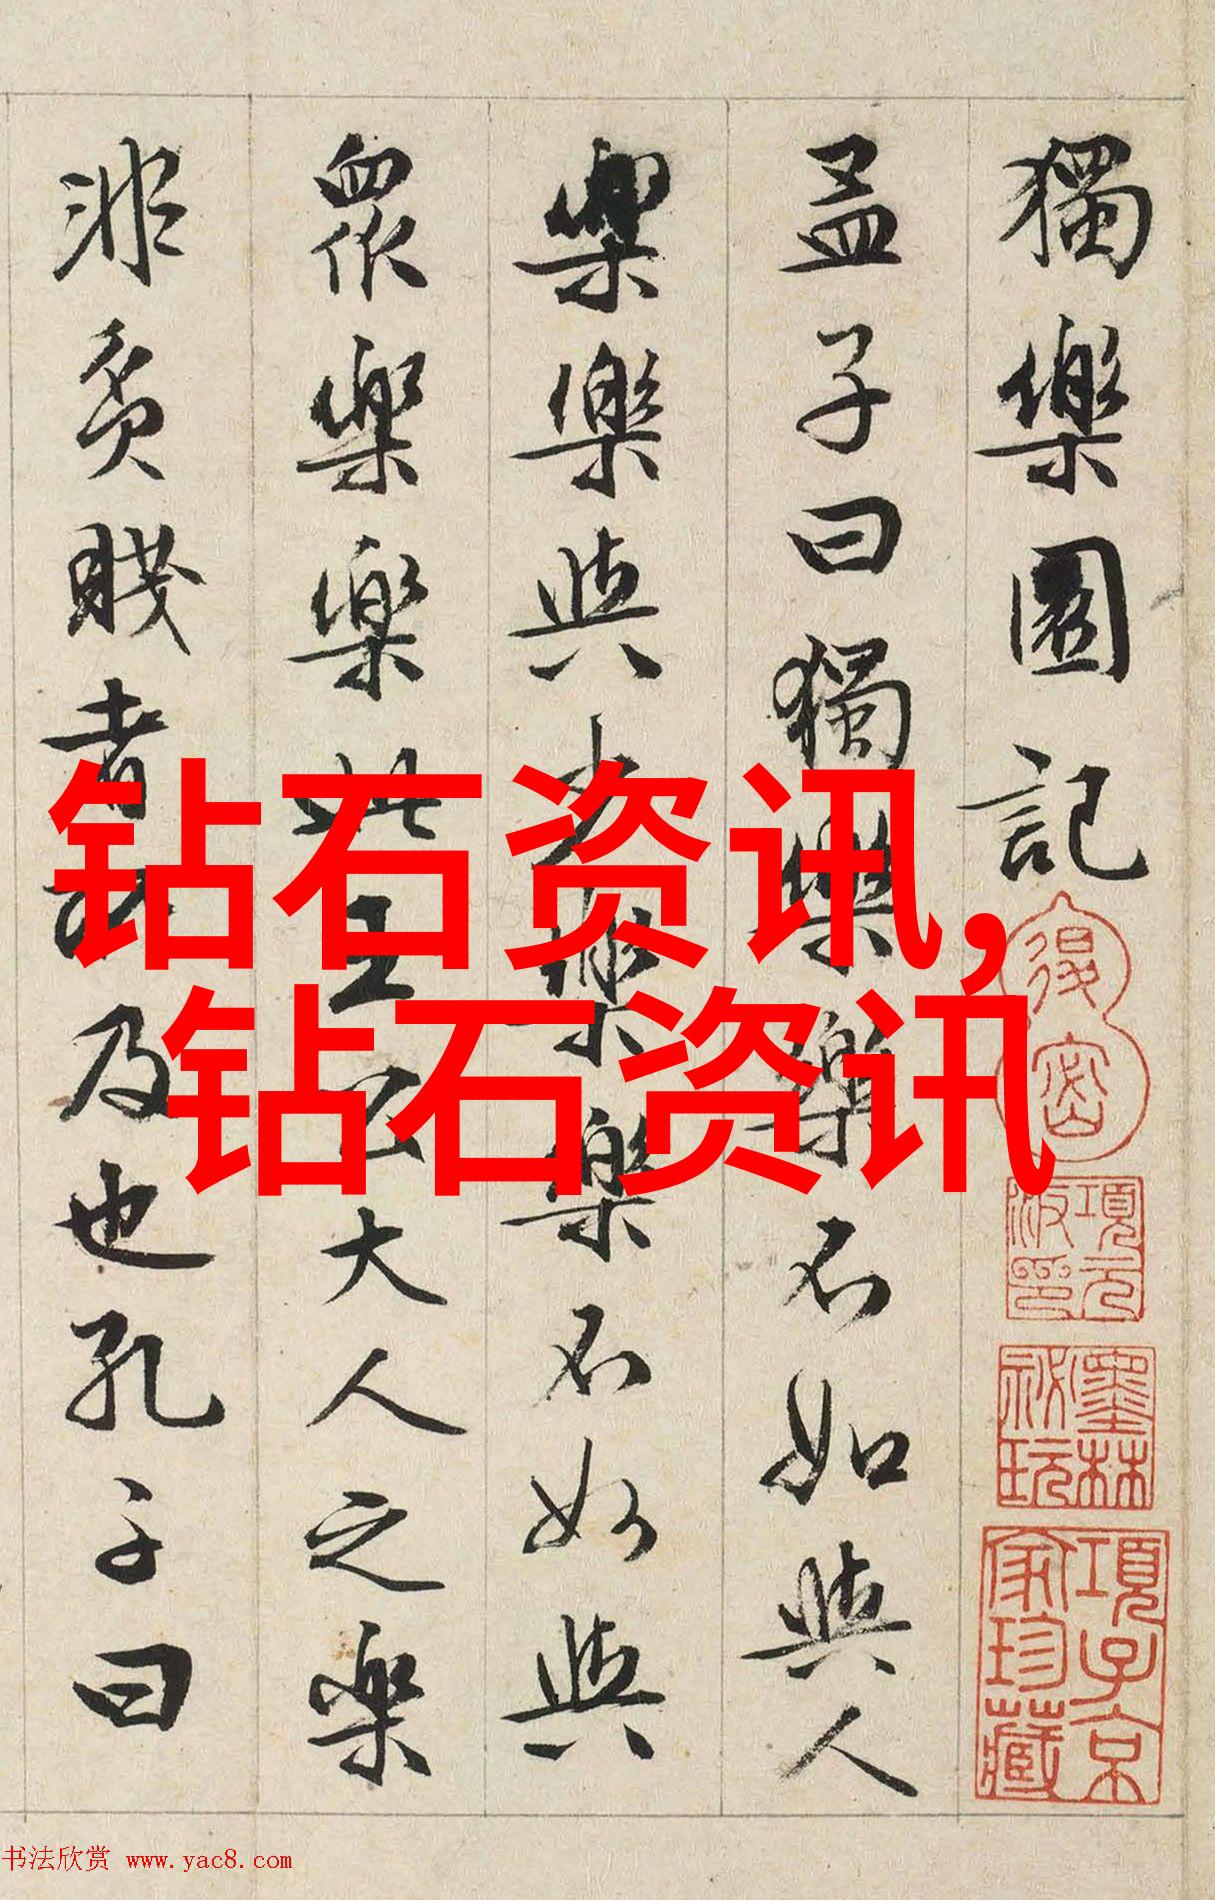 獨樂園記
孟子曰獨樂樂不如與人
樂樂與少樂樂不如與
眾樂樂此王公大人之樂
非貧賤者所及也孔子曰
钻石资讯,
钻石资讯
項元
汴印
墨林
祕玩
項子京
家珍藏
书法欣赏 www.yac8.com